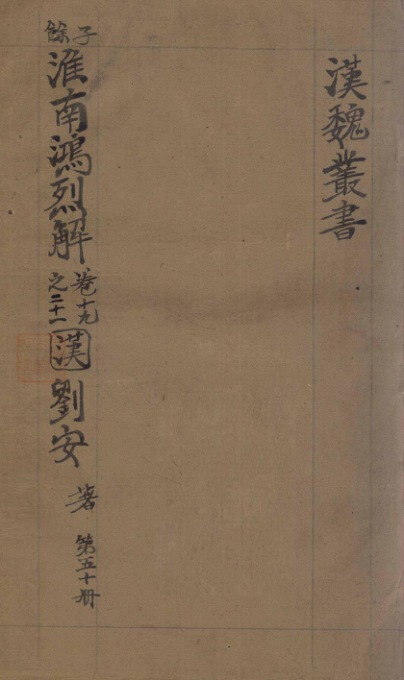 漢魏叢書
子餘
淮南鴻烈解
卷十九
之二十一
漢
劉安
著
第五十冊